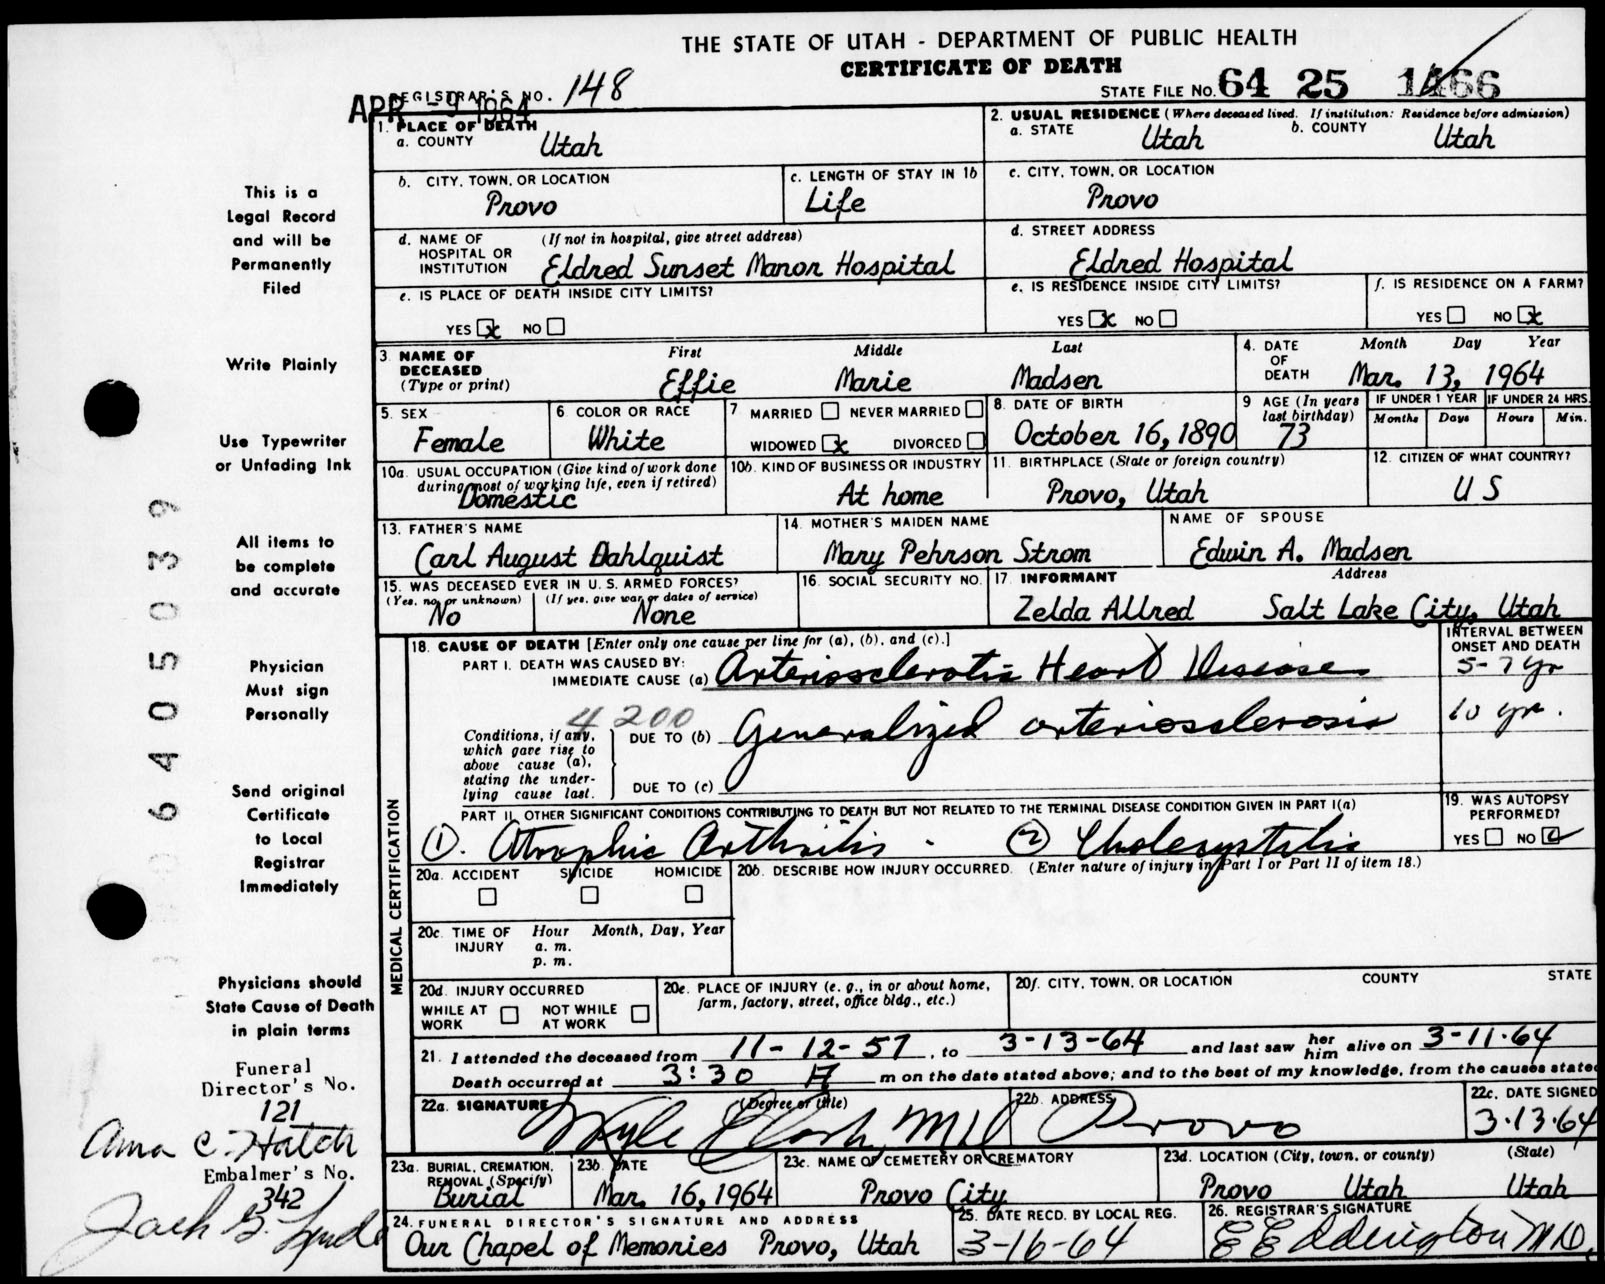 THE STATE OF UTAH - DEPARTMENT OF PUBLIC HEALTH
CERTIFICATE OF DEATH
REGISTRAR'S NO. 148
STATE FILE NO. 64 25 1466
APR -9 1964
1. PLACE OF DEATH
a. COUNTY Utah
2. USUAL RESIDENCE (Where deceased lived. If institution: Residence before admission)
a. STATE Utah b. COUNTY Utah
b. CITY, TOWN, OR LOCATION Provo
c. LENGTH OF STAY IN 1b Life
c. CITY, TOWN, OR LOCATION Provo
d. NAME OF HOSPITAL OR INSTITUTION (If not in hospital, give street address) Eldred Sunset Manor Hospital
d. STREET ADDRESS Eldred Hospital
e. IS PLACE OF DEATH INSIDE CITY LIMITS? YES x NO
e. IS RESIDENCE INSIDE CITY LIMITS? YES x NO
f. IS RESIDENCE ON A FARM? YES NO x
3. NAME OF DECEASED (Type or print)
First Middle Last
Effie Marie Madsen
4. DATE OF DEATH Month Day Year
Mar. 13, 1964
5. SEX Female
6 COLOR OR RACE White
7 MARRIED NEVER MARRIED
WIDOWED x DIVORCED
8. DATE OF BIRTH October 16, 1890
9 AGE (In years last birthday) 73
IF UNDER 1 YEAR Months Days
IF UNDER 24 HRS. Hours Min.
10a. USUAL OCCUPATION (Give kind of work done during most of working life, even if retired) Domestic
10b. KIND OF BUSINESS OR INDUSTRY At home
11. BIRTHPLACE (State or foreign country) Provo, Utah
12. CITIZEN OF WHAT COUNTRY? U S
13. FATHER'S NAME Carl August Dahlquist
14. MOTHER'S MAIDEN NAME Mary Pehrson Strom
NAME OF SPOUSE Edwin A. Madsen
15. WAS DECEASED EVER IN U. S. ARMED FORCES?
(Yes, no, or unknown) No (If yes, give war or dates of service) None
16. SOCIAL SECURITY NO.
17. INFORMANT Address
Zelda Allred Salt Lake City, Utah
MEDICAL CERTIFICATION
18. CAUSE OF DEATH [Enter only one cause per line for (a), (b), and (c).]
INTERVAL BETWEEN ONSET AND DEATH
PART I. DEATH WAS CAUSED BY:
IMMEDIATE CAUSE (a) Arteriosclerotic Heart Disease 5-7 yr
4200
Conditions, if any, which gave rise to above cause (a), stating the underlying cause last.
DUE TO (b) Generalized arteriosclerosis 10 yr.
DUE TO (c)
PART II. OTHER SIGNIFICANT CONDITIONS CONTRIBUTING TO DEATH BUT NOT RELATED TO THE TERMINAL DISEASE CONDITION GIVEN IN PART I(a)
(1). Atrophic Arthritis. (2) Cholecystitis
19. WAS AUTOPSY PERFORMED?
YES NO
20a. ACCIDENT SUICIDE HOMICIDE
20b. DESCRIBE HOW INJURY OCCURRED. (Enter nature of injury in Part I or Part II of item 18.)
20c. TIME OF INJURY Hour a. m. p. m. Month, Day, Year
20d. INJURY OCCURRED
WHILE AT WORK NOT WHILE AT WORK
20e. PLACE OF INJURY (e. g., in or about home, farm, factory, street, office bldg., etc.)
20f. CITY, TOWN, OR LOCATION COUNTY STATE
21. I attended the deceased from 11-12-57, to 3-13-64 and last saw her him alive on 3-11-64
Death occurred at 3:30 A m on the date stated above; and to the best of my knowledge, from the causes stated
22a. SIGNATURE (Degree or title) MD
22b. ADDRESS Provo
22c. DATE SIGNED 3-13-64
23a. BURIAL, CREMATION, REMOVAL (Specify) Burial
23b. DATE Mar. 16, 1964
23c. NAME OF CEMETERY OR CREMATORY Provo City
23d. LOCATION (City, town, or county) (State)
Provo Utah Utah
24. FUNERAL DIRECTOR'S SIGNATURE AND ADDRESS
Our Chapel of Memories Provo, Utah
25. DATE RECD. BY LOCAL REG. 3-16-64
26. REGISTRAR'S SIGNATURE E E Eddington MD.
This is a
Legal Record
and will be
Permanently
Filed
Write Plainly
Use Typewriter
or Unfading Ink
All items to
be complete
and accurate
Physician
Must sign
Personally
Send original
Certificate
to Local
Registrar
Immediately
Physicians should
State Cause of Death
in plain terms
Funeral
Director's No.
121
Anna C. Hatch
Embalmer's No.
342
Jack G.
6405039